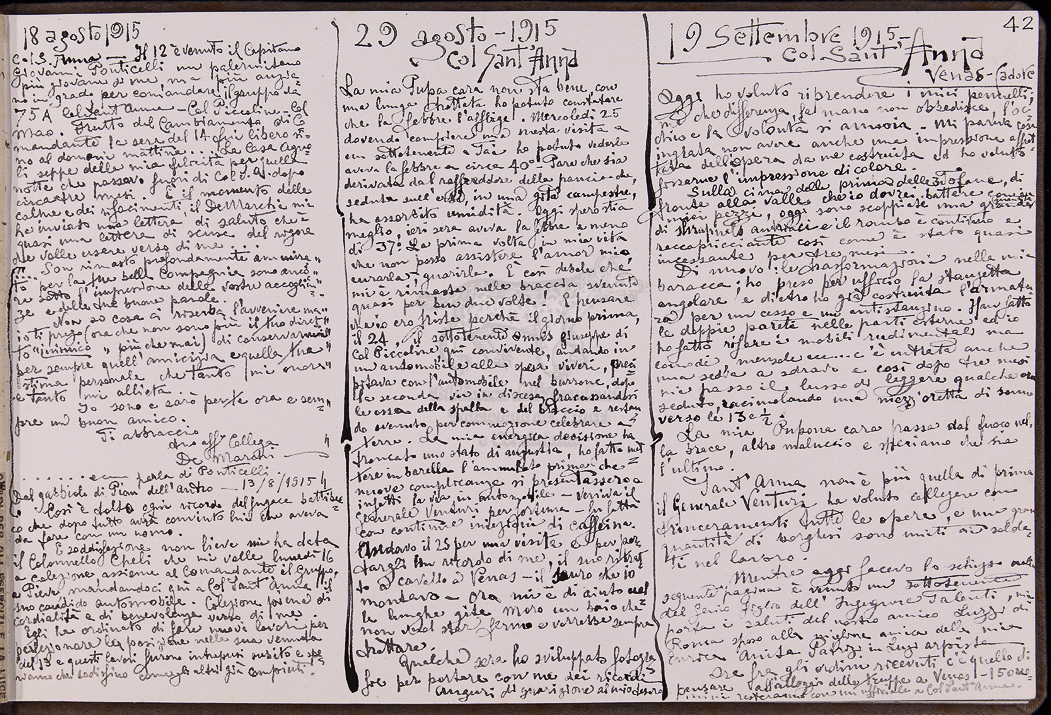 42
18 agosto 1915
Col S. Anna — Il 12 è venuto il Capitano
Giovanni Ponticelli un palermitano
più giovane di me ma più anzia
no in grado per comandare il gruppo da
75 A Col Sant'Anna - Col Piccolin - Col
Mandante la sera del 14 fui libero
no al domani mattina
notte che passavo fuori di Col S. A. dopo
circa tre mesi. È il momento delle
ha inviato una lettera di saluto che è
quasi una lettera di scuse del rigore
che volle avere verso di me...
Son rimasto profondamente ammira
to per la tua bella Compagnia
sotto l'impressione delle vostre accoglien
ze e delle tue buone parole.
Non so cosa ci riserba l'avvenire ma
io ti prego (ora che non sono più il tuo
"nimico" più che mai) di conservarmi
per sempre quell'amicizia e quella tua
stima personale che tanto mi onora
e tanto mi allieta.
Io sono e sarò per te ora e sem
pre un buon amico.
Ti abbraccio
tuo aff Collega
De Marchi
perla di Ponticelli
13/8/1915
Così è tolto ogni ricordo del fugace battibec
co che dopo tutto avrà convinto lui che aveva
da fare con un uomo.
E soddisfazione non lieve mi ha data
il Colonnello Cheli che mi volle lunedì 16
a colezione assieme al Comandante il Gruppo,
a Pieve mandandoci qui a Col Sant'Anna il
suo candido automobile. Colezione piena di
cordialità e di benevolenza verso di me.
Egli ha ordinato di fare nuovi lavori per
perfezionare la posizione nella sua venuta
del 13 e questi lavori furono intrapresi subito e spe
riamo che
29 agosto - 1915
Col Sant'Anna
La mia Pupa cara non sta bene, con
una lunga trottata ho potuto constatare
che la febbre l'affligge! Mercoledì 25
dovendo compiere una nostra visita a
un sottotenente a Tai ho potuto vederla
aveva la febbre a circa 40°. Pare che sia
derivata dal raffreddore della pancia - che,
seduta sull'erba, in una gita campestre,
ha assorbito umidità. Oggi però sta
meglio, ieri sera aveva la febbre a meno
di 37°. La prima volta in mia vita
che non posso assistere l'amor mio,
curarla, guarirla. È così debole che
mi è rimasta nelle braccia svenuta
quasi per ben due volte! E pensare
che io ero triste perchè il giorno prima,
il 24, il sottotenente Giuseppe di
Col Piccolino qui convivente, andando in
un automobile alla spesa viveri, preci
pitava con l'automobile nel burrone, dopo
la seconda via in discesa, fracassandosi
le ossa della spalla del braccio e restan
do svenuto per commozione celebrare a
terra. La mia energica decisione ha
troncato uno stato di angustia, ho fatto met
tere in barella l'ammalato primachè
nuove complicanze si presentassero e
Generale Venturi per fortuna - fu fatta
con continue iniezioni di caffeina
Andavo il 25 per una visita e per por
targli un ricordo di me, il suo ritrat
to a cavallo a Venas - il sauro che io
montavo - ora mi è di aiuto nel
le lunghe gite Moro un baio che
non vuol star fermo e vorrebbe sempre
trottare.
Qualche sera ho sviluppato fotogra
fie per portare con me dei ricordi.
Auguri di guarigione al mio tesoro
19 Settembre 1915 -
Col Sant'Anna
Venas - Cadore
Oggi ho voluto riprendere i miei pennelli,
che differenza, la mano non obbedisce, l'oc
chio e la volontà si annoia. Mi pareva cosa
ingrata non avere anche una impressione affret
tata dell'opera da me costruita ed ho voluto
fissarne l'impressione di colore.
Sulla cima della prima delle tofane, di
fronte alla valle che io dovrei battere coi
miei pezzi, oggi sono scoppiate una
di shrapnels e il rombo è continuo e
raccapricciante così come è stato quasi
incessante per tre mesi.
Di nuovo: le trasformazioni nella mia
baracca; ho preso per ufficio la stanzetta
angolare, e dietro ho già costruita l'armatu
ra per un cesso e un antistanzino. Hanno fatta
la doppia parete nelle parti esterne, ed io
ho fatto rifare i mobili rudimentali ma
comodi mensole ecc... c'è entrata anche
una sedia a sdraio e così dopo tre mesi
mi passo il lusso di leggere qualche ora
seduto, racimolando una mezzoretta di sonno
verso le 13 e ½.
La mia Pupona cara passa dal fuoco nel
la brace, altro malaccio e speriamo che sia
l'ultimo.
Sant'Anna non è più quella di prima
il Generale Venturi ha voluto collegare con
trinceramenti tutte le opere, e una gran
quantità di borghesi sono uniti ai solda
ti nel lavoro.
Mentre oggi facevo lo schizzo nella
seguente pagina è venuto un sottotenente
del Genio figlio dell'Ingegnere Talenti, mi
porta i saluti del nostro amico Luzzi di
Roma sposo alla migliore amica della mia
Enrica Anita Parizi in Luzzi arpista.
Tre fra gli ordini ricevuti c'è quello di
pensare all'alloggio delle truppe a Venas - 150
resteranno con un ufficiale a Col Sant'Anna.